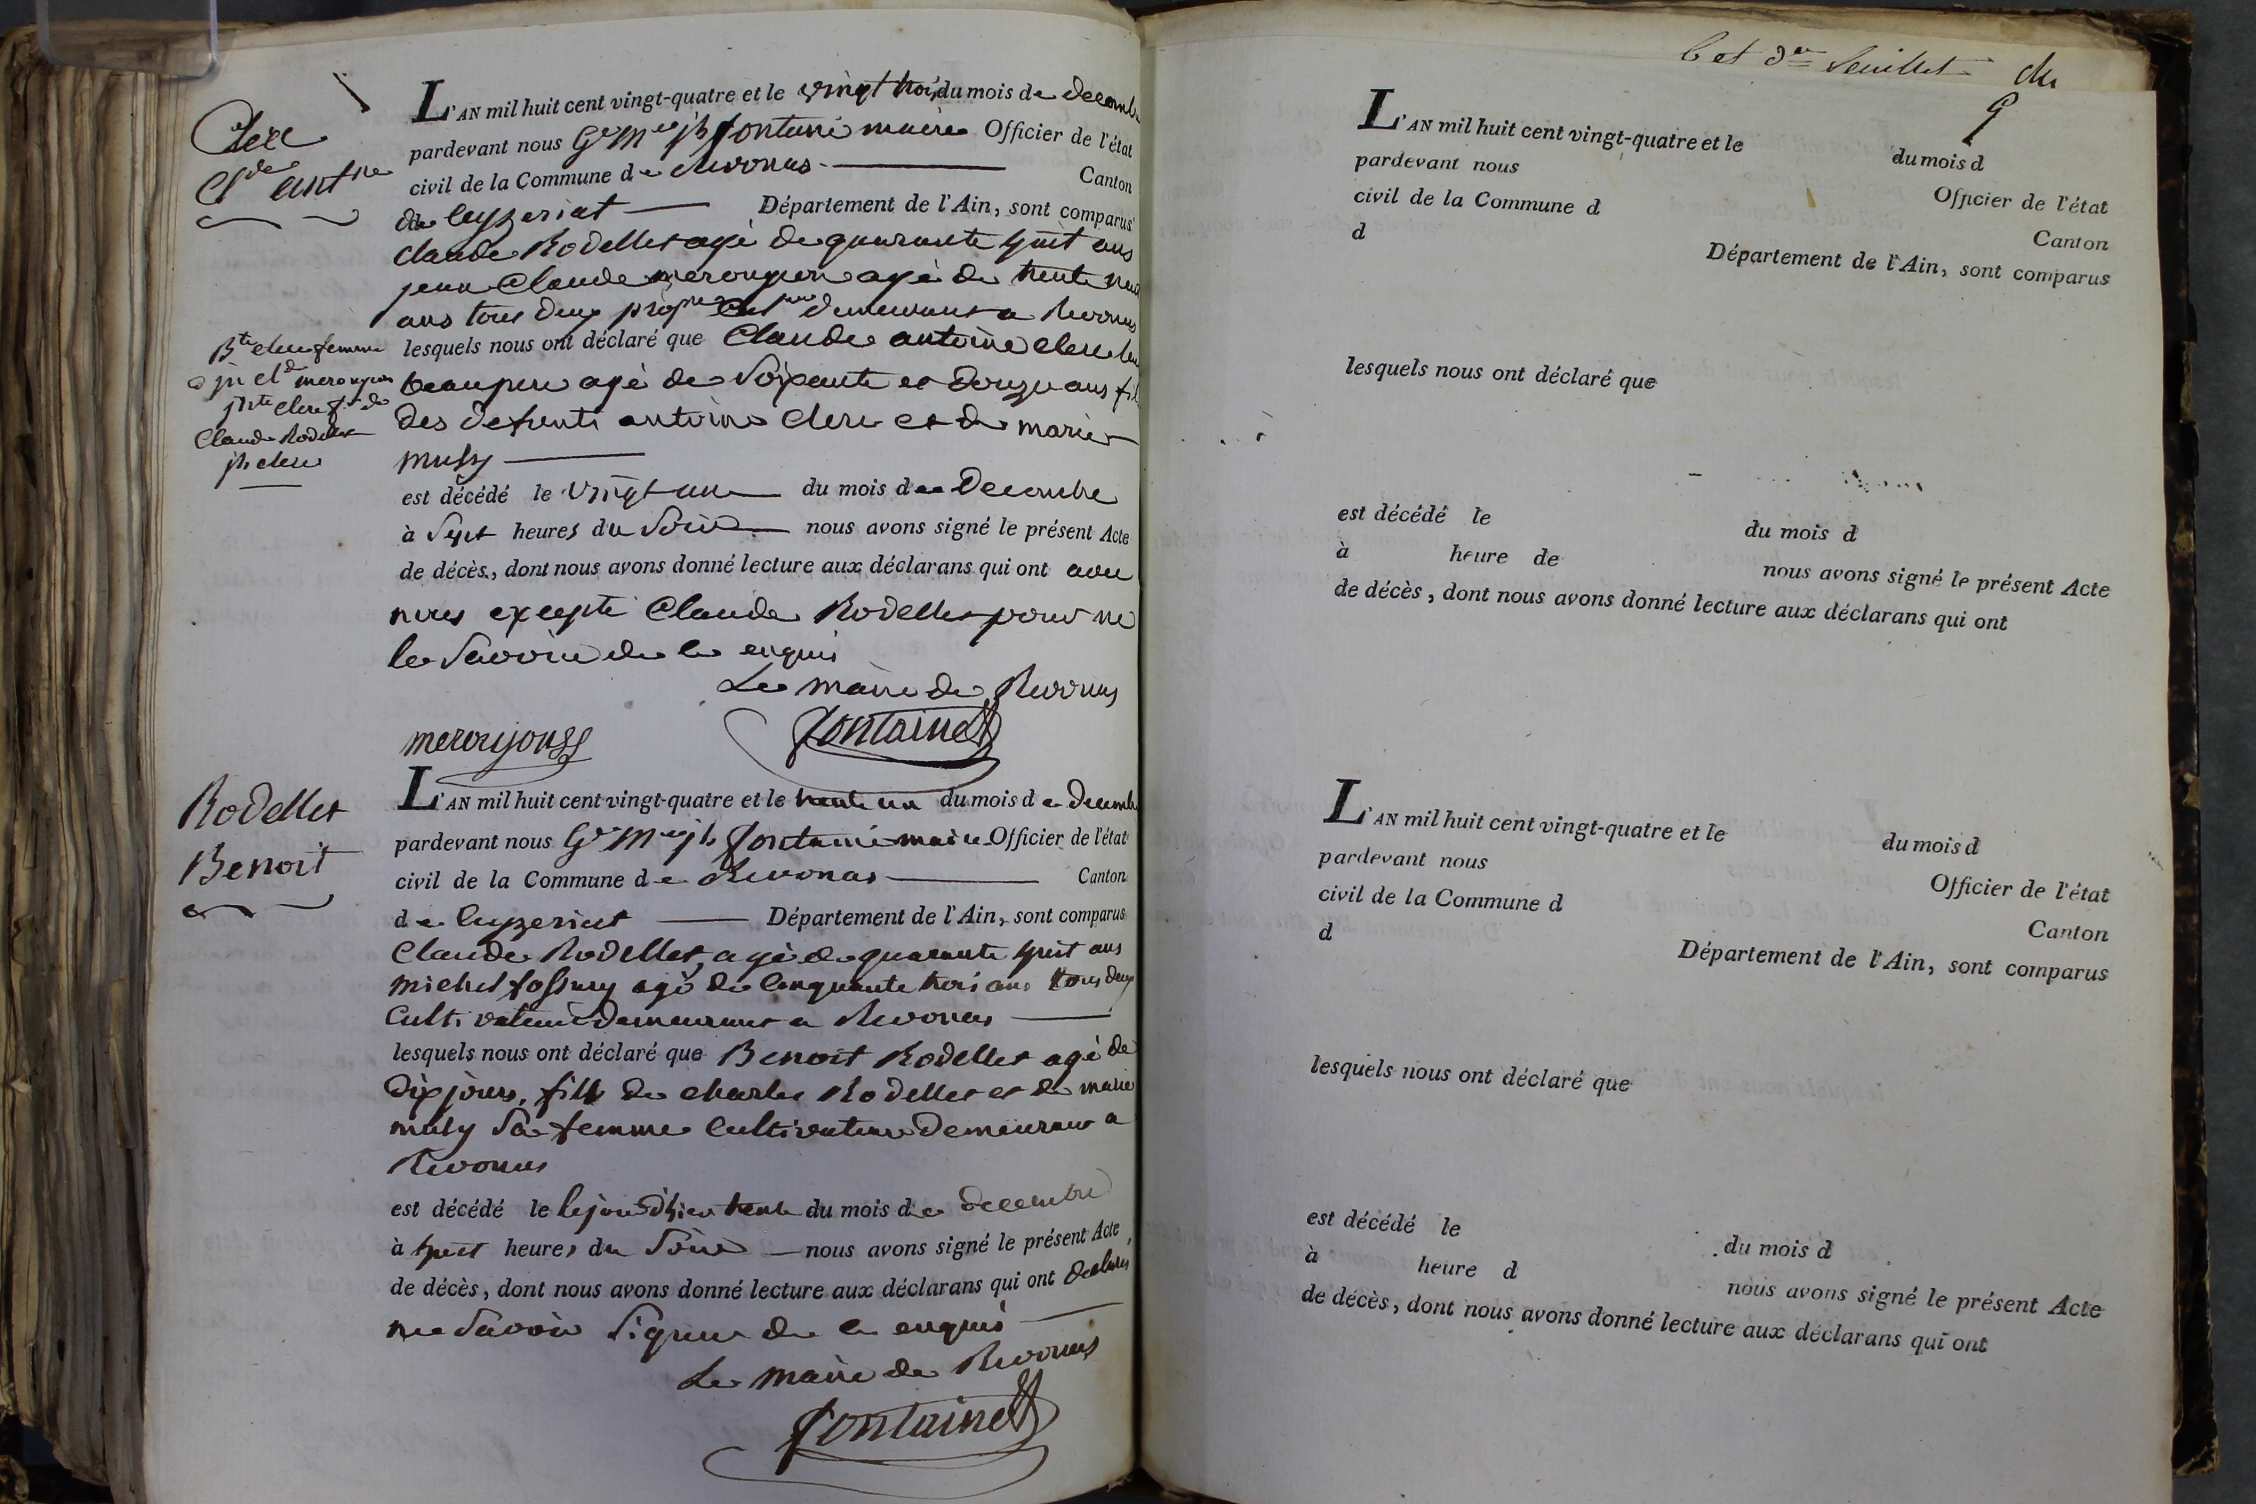 Clerc
Cl.de ant.ne
L'AN mil huit cent vingt-quatre et le vingt trois du mois de decemb
pardevant nous G.d M.ie j.h fontaine maire Officier de l'état
civil de la Commune de Revonas Canton
de Ceyzeriat Département de l'Ain, sont comparus
claude Rodellet agé de quarante huit ans
jean Claude meroujou agé de trente
ans tous deux prop.re demeurant a Revonas
B.te clerc femme
a j.n cl.d
j.hte clerc f. de
Claude Rodellet
j.h clerc
lesquels nous ont déclaré que Claude antoine clerc leu
beaupere agé de Soixante et Douze ans fil
des defunts antoine Clerc et de marie
musy
est décédé le vingt un du mois de Decembre
à Sept heures du Soir nous avons signé le présent Acte
de décès, dont nous avons donné lecture aux déclarans qui ont avec
nous excepté Claude Rodellet pour ne
le Savoir de ce enquis
Le maire de Revonas
fontaine
Rodellet
Benoit
L'AN mil huit cent vingt-quatre et le trente un du mois de decemb
pardevant nous G.d M.ie j.h fontaine maire Officier de l'état
civil de la Commune de Revonas Canton
de Ceyzeriat Département de l'Ain, sont comparus
Claude Rodellet agé de quarante huit ans
michel agé de Cinquante trois ans tous deux
Cultivateurs demeurant a Revonas
lesquels nous ont déclaré que Benoit Rodellet agé de
Dix jours, fils de charles Rodellet et de marie
musy Sa femme Cultivateurs Demeurant a
Revonas
est décédé le le jour d'hier trente du mois de decembre
à huit heures du Soir nous avons signé le présent Acte
de décès, dont nous avons donné lecture aux déclarans qui ont declarés
ne Savoir Signer de ce enquis
Le maire de Revonas
fontaine
6 et d.er feuillet du
L'AN mil huit cent vingt-quatre et le du mois d
pardevant nous Officier de l'état
civil de la Commune d Canton
d Département de l'Ain, sont comparus
lesquels nous ont déclaré que
est décédé le du mois d
à heure de nous avons signé le présent Acte
de décès, dont nous avons donné lecture aux déclarans qui ont
L'AN mil huit cent vingt-quatre et le du mois d
pardevant nous Officier de l'état
civil de la Commune d Canton
d Département de l'Ain, sont comparus
lesquels nous ont déclaré que
est décédé le du mois d
à heure d nous avons signé le présent Acte
de décès, dont nous avons donné lecture aux déclarans qui ont